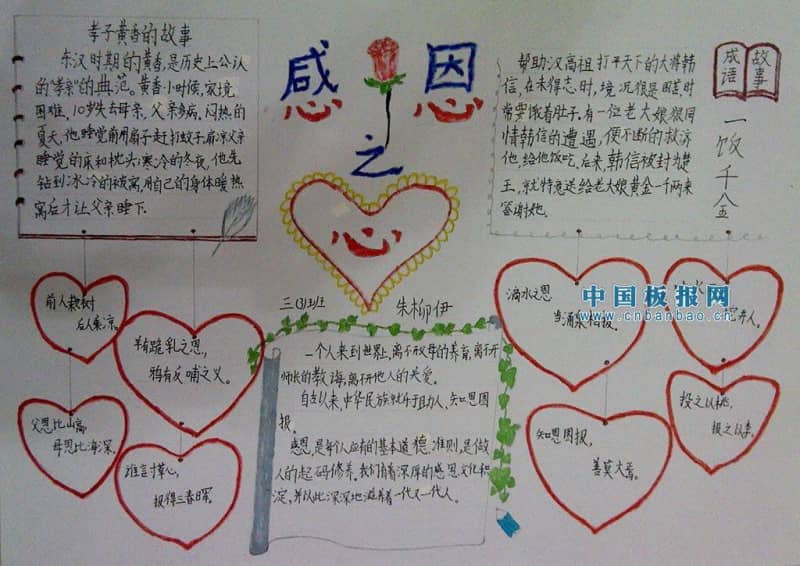 孝子黄香的故事
东汉时期的黄香,是历史上公认
的"孝亲"的典范。黄香小时候,家境
困难,10岁失去母亲,父亲多病,闷热的
夏天,他睡觉前用扇子赶打蚊子,扇凉父亲
睡觉的床和枕头;寒冷的冬夜,他先
钻到冰冷的被窝,用自己的身体暖热
窝后才让父亲睡下.
感恩
之
心
帮助汉高祖打平天下的大将韩
信,在未得志时,境况很是困苦时
常要饿着肚子.有一位老大娘很同
情韩信的遭遇,便不断的救济
他,给他饭吃.后来,韩信被封为楚
王,就特意送给老大娘黄金一千两来
答谢她.
成语故事
一饭千金
三(3)班 朱柳伊
前人栽树
后人乘凉.
羊有跪乳之恩,
鸦有反哺之义.
父恩比山高,
母恩比海深.
谁言寸草心,
报得三春晖.
一个人来到世界上,离不开父母的养育,离不开
师长的教诲,离不开他人的关爱.
自古以来,中华民族就乐于助人、知恩图
报.
感恩,是每个人应有的基本道德准则,是做
人的起码修养.我们有着深厚的感恩文化积
淀,并以此深深地滋养着一代又一代人.
滴水之恩
当涌泉相报.
井人.
知恩图报,
善莫大焉.
投之以桃,
报之以李.
中国板报网
www.cnbanbao.cn